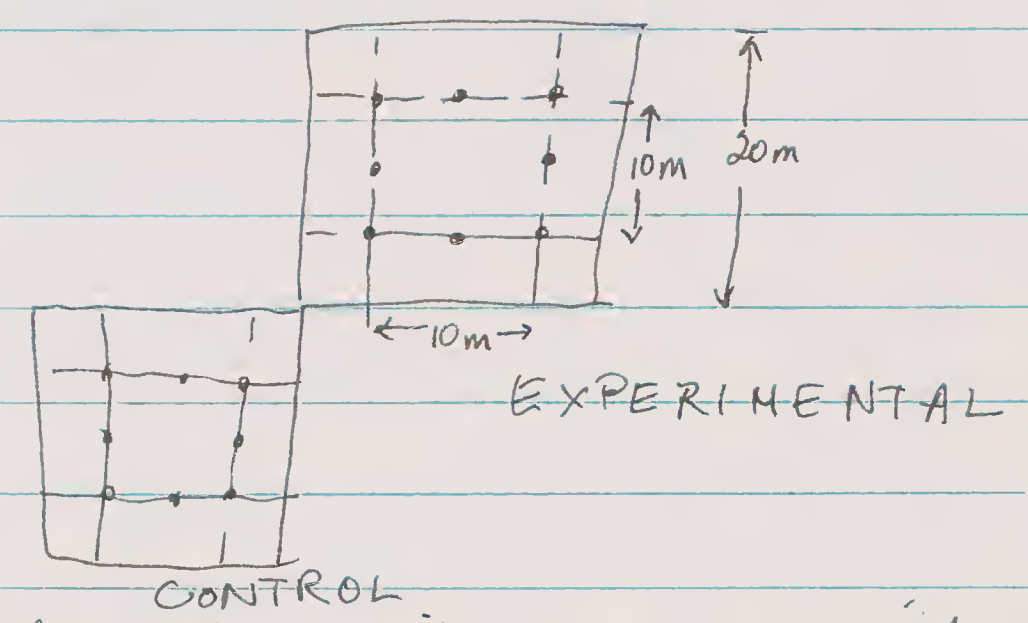 10m
20m
10m
EXPERIMENTAL
CONTROL